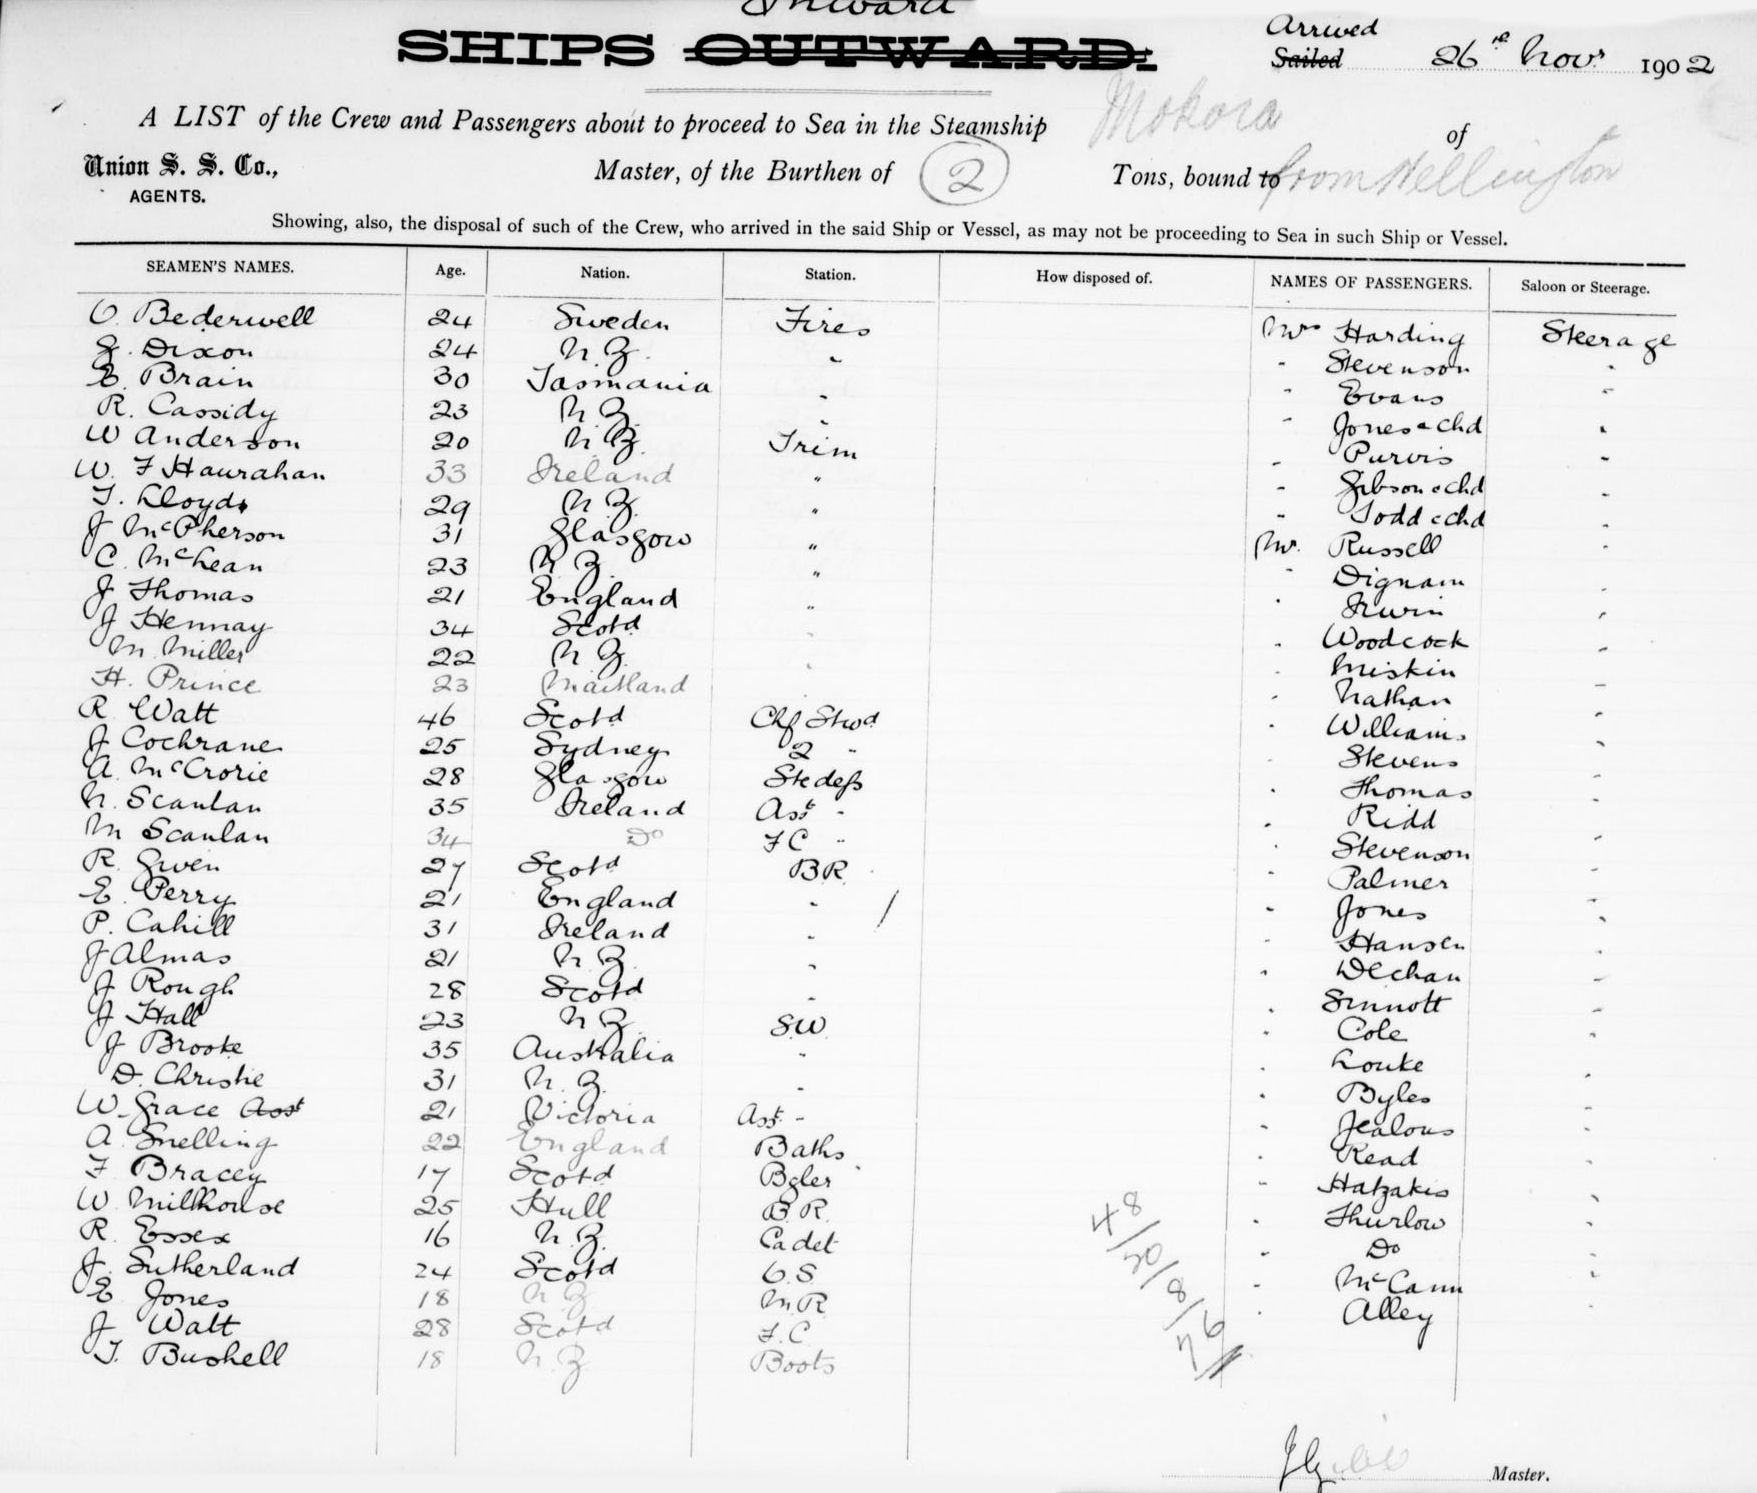 Inward
SHIPS OUTWARD.
Arrived
Sailed 26th Novr 1902
A LIST of the Crew and Passengers about to proceed to Sea in the Steamship Mokoia of
Union S. S. Co.,
AGENTS.
Master, of the Burthen of 2 Tons, bound to from Wellington
Showing, also, the disposal of such of the Crew, who arrived in the said Ship or Vessel, as may not be proceeding to Sea in such Ship or Vessel.
SEAMEN'S NAMES. Age. Nation. Station. How disposed of. NAMES OF PASSENGERS. Saloon or Steerage.
O. Bederwell 24 Sweden Fires Mrs Harding Steerage
J. Dixon 24 N.Z. " " Stevenson "
E. Brain 30 Tasmania " " Evans "
R. Cassidy 23 N.Z. " " Jones & Chd "
W Anderson 20 N.Z. Trim " Purvis "
W. F Haurahan 33 Ireland " " Gibson & Chd "
T. Lloyds 29 N.Z. " " Todd & Chd "
J McPherson 31 Glasgow " Mr. Russell "
C. McLean 23 N.Z. " " Dignam "
J Thomas 21 England " " Irwin "
J Hennay 34 Scotd " " Woodcock "
M. Miller 22 N.Z. " " Miskin "
H. Prince 23 Maitland " Nathan "
R Watt 46 Scotd Chf Stwd " Williams "
J Cochrane 25 Sydney 2 " " Stevens "
A. McCrorie 28 Glasgow Stedess " Thomas "
N. Scanlan 35 Ireland Asst " " Ridd "
M Scanlan 34 Do F C " " Stevenson "
R. Gwen 27 Scotd B.R. " Palmer "
E. Perry 21 England " " Jones "
P. Cahill 31 Ireland " " Hansen "
J Almas 21 N.Z. " " Dechan "
J Rough 28 Scotd " " Sinnott "
J Hall 23 N.Z. S.W. " Cole "
J Brooke 35 Australia " " Louke "
D. Christie 31 N.Z. " " Byles "
W. Grace Asst 21 Victoria Asst " " Jealous "
A. Snelling 22 England Baths " Read "
F Bracey 17 Scotd Bgler " Hatzakis "
W Millhouse 25 Hull B.R. " Thurlow "
R. Essex 16 N.Z. Cadet " Do "
J. Sutherland 24 Scotd O.S. " McCann "
E Jones 18 N.Z. M.R " Alley "
J Watt 28 Scotd F.C.
T. Bushell 18 N.Z Boots
48/20/8/76
Master.